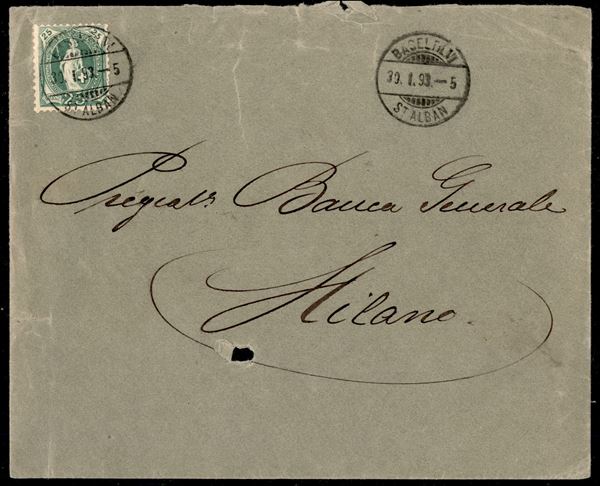 25 25
25
30. I. 93.—5
ST. ALBAN
BASEL FIL. VI
30. I. 93.—5
ST. ALBAN
Pregiat.
Banca Generale
Milano.